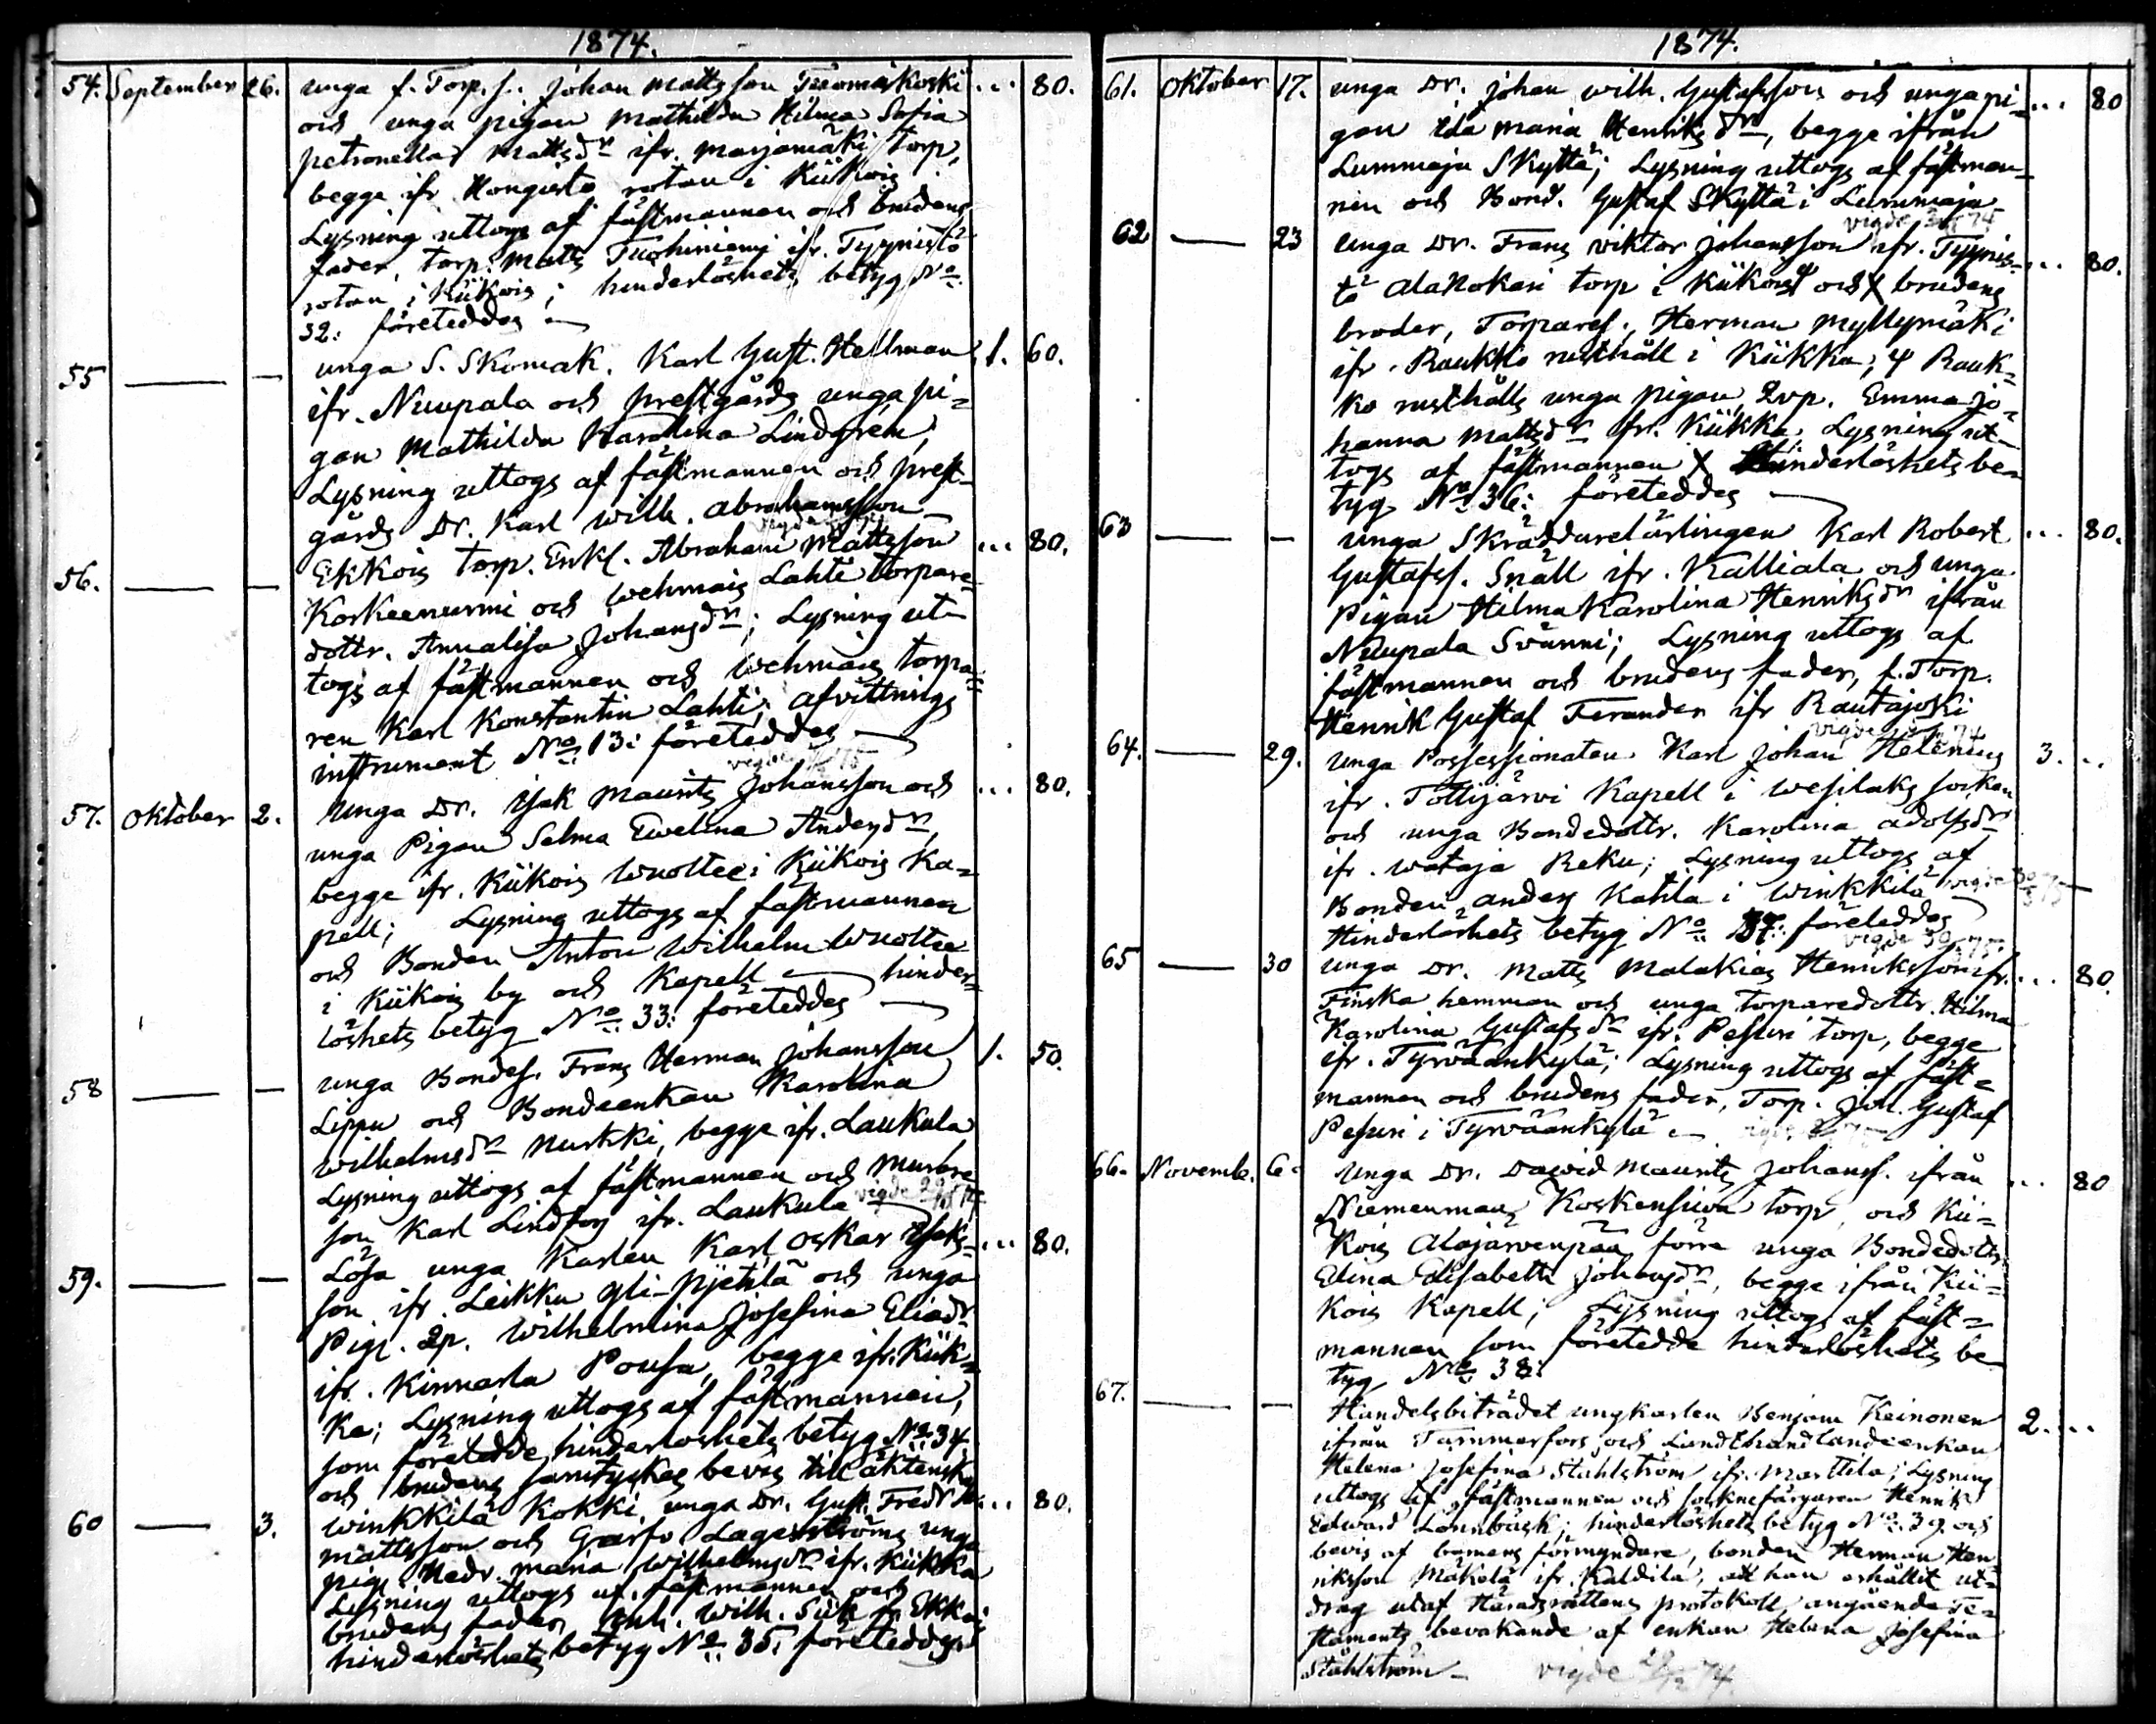 1874.
54. September 26. unga f. Torp. s. Johan Mattsson Tuomiskoski ... 80.
och unga pigan Mathilda Hilma Sofia
petronella Mattsdr ifr. Marjamäki torp,
begge ifr. Hongisto rotan i Kiikois
Lysning uttogs af fästmannen och brudens
fader, torp. Matts Tuohiniemi ifr. Tyynistö
rotan i Kiikois; hinderlöshets betyg No
32: företeddes
55 — — unga S. Skomak. Karl Gust. Hellman 1. 60.
ifr. Nuupala och prestgårds unga pi=
gan Mathilda Karolina Lindgren;
Lysning uttogs af fästmannen och prest-
gårds Dr. Karl Wilh. Abrahamsson
56. — — Ekkois torp. Enkl. Abraham Mattsson ... 80.
Koskeenurmi och Wehmais Lahti torpare-
dottr. Annalisa Johansdr; Lysning ut-
togs af fästmannen och Wehmais torpa-
ren Karl Konstantin Lahti; afvittrings
instrument No 13: företeddes
57. Oktober 2. unga Dr. Isak Maurits Johansson och ... 80.
unga Pigan Selma Ewelina Andersdr,
begge ifr. Kiikois Wuoltee i Kiikois Ka=
pell; Lysning uttogs af fästmannen
och Bonden Anton Wilhelm Wuoltee
i Kiikois by och Kapell — hinder=
löshets betyg No 33: företeddes
58 — — unga Bondes. Frans Herman Johansson 1. 50.
Lippu och Bondeenkan Karolina
Wilhelmsdr Nurkki, begge ifr. Laukula
Lysning uttogs af fästmannen och Murare
son Karl Lindfors ifr. Laukula
59. — — Lösa unga Karlen Karl Oskar Isaks= ... 80.
son ifr. Leikku Yli-Pjetilä och unga
Pig. 2p. Wilhelmina Josefina Eliadr
ifr. Kinnarla Pousa, begge ifr. Kiik=
ka; Lysning uttogs af fästmannen,
som företedde hinderlöshets betyg No 34
och brudens samtyckes bevis till äktenskap
60 — 3. Winkkilä Kokki, unga Dr. Gust. Fredr. ... 80.
Mattsson och Lagerströms unga
pig. Hedv. Maria Wilhelmsdr ifr. Kiikka
Lysning uttogs af fästmannen och
brudens fader, Inh. Wilh. ifr. Ekkois
hinderlöshets betyg No 35: företeddes
1874.
61. Oktober 17. unga Dr. Johan Wilh. Gustafsson och unga pi- ... 80
gan Ida Maria Henriksdr, begge ifrån
Lummaja Skyttä; Lysning uttogs af fästman-
nen och Bond. Gustaf Skyttä i Lummaja
62 — 23 unga Dr. Frans Viktor Johansson ifr. Tyynis= ... 80.
tö Alanokari torp i Kiikois och X brudens
broder, Torpares., Herman Myllymäki
ifr. Raukko rusthåll i Kiikka; Rauk=
ko rusthålls unga pigan, 2vp. Emma Jo=
hanna Mattsdr fr. Kiikka. Lysning ut-
togs af fästmannen X Hinderlöshets be-
tyg No 36: företeddes
63 — — unga Skräddarelärlingen Karl Robert ... 80.
Gustafss. Snäll ifr. Kalliala och unga
Pigan Hilma Karolina Henriksdr ifrån
Nuupala Svänni; Lysning uttogs af
fästmannen och brudens fader, f. Torp.
Henrik Gustaf Terander ifr Rautajoski
64. — 29. unga Possessionaten Karl Johan Helenius 3. ..
ifr. Tottijärvi Kapell i Wesilaks socken
och unga Bondedottr. Karolina Adolfsdr
ifr. Wataja Reku; Lysning uttogs af
Bonden Anders Kahla i Winkkilä
Hinderlöshets betyg No 37: företeddes
65 — 30 unga Dr. Matts Malakias Henriksson ifr. ... 80.
Finska hemman och unga torparedottr. Hilma
Karolina Gustafsdr ifr. Pesuri torp, begge
ifr. Tyrväänkylä; Lysning uttogs af fäst=
mannen och brudens fader, Torp. Joh. Gustaf
Pesuri i Tyrväänkylä
66. Novemb. 6. unga Dr. Dawid Maurits Johanss. ifrån ... 80
Niemenmaa Koskensuon torp, och Kii=
kois Alajärvenpää förra unga Bondedottr
Elina Elisabeth Johansdr, begge ifrån Kii=
kois Kapell; Lysning uttogs af fäst=
mannen som företedde hinderlöshets be-
tyg No 38:
67. — — Handelsbiträdet ungkarlen Benjam Keinonen 2. ...
ifrån Tammerfors och Landthandlandeenkan
Helena Josefina Ståhlström ifr. Marttila; Lysning
uttogs af fästmannen och socknefärgaren Henrik
Edward Lönnbäck; hinderlöshets betyg No 39. och
bevis af barnens förmyndare, bonden Herman Hen-
riksson Mäkelä ifr. Kaldila, att han erhållit ut-
drag utaf Häradsrättens protokoll angående Te=
staments bevakande af enkan Helena Josefina
Ståhlström — vigde 29/12 74.